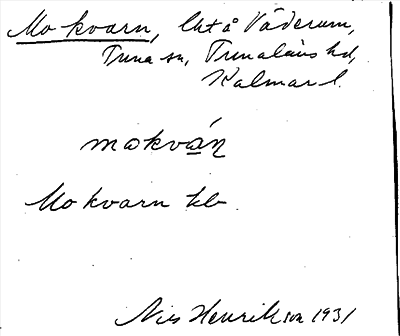 Mo kvarn, Ukt å Väderum,
Tuna sn, Tunaläns hd,
Kalmar l.
mokván
Mo kvarn kb
Nils Henrikson 1931